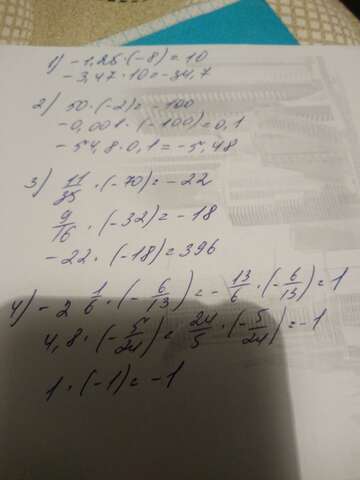 1) -1,25·(-8)=10
-3,47·10=-34,7
2) 50·(-2)=-100
-0,001·(-100)=0,1
-54,8·0,1=-5,48
3) 11/35·(-70)=-22
9/16·(-32)=-18
-22·(-18)=396
4) -2 1/6·(-6/13)=-13/6·(-6/13)=1
4,8·(-5/24)=24/5·(-5/24)=-1
1·(-1)=-1